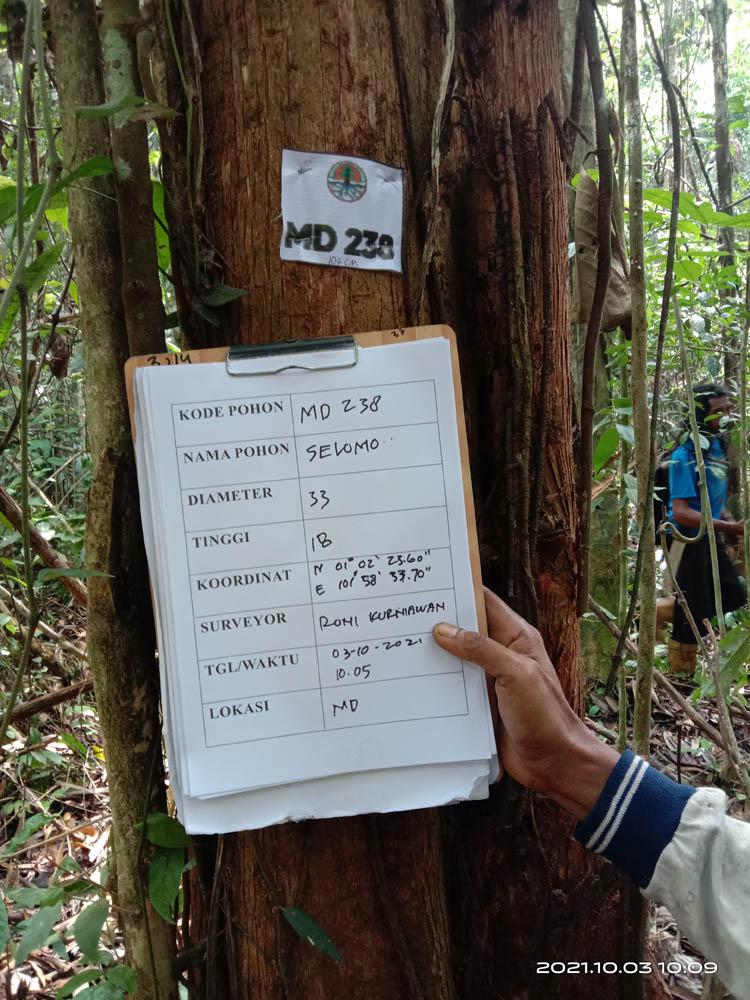 MD 238
104 CM
KODE POHON MD 238
NAMA POHON SELUMO
DIAMETER 33
TINGGI 18
KOORDINAT N 01° 02' 23.60"
E 101° 58' 33.70"
SURVEYOR RONI KURNIAWAN
TGL/WAKTU 03-10-2021
10.05
LOKASI MD
2021.10.03 10:09